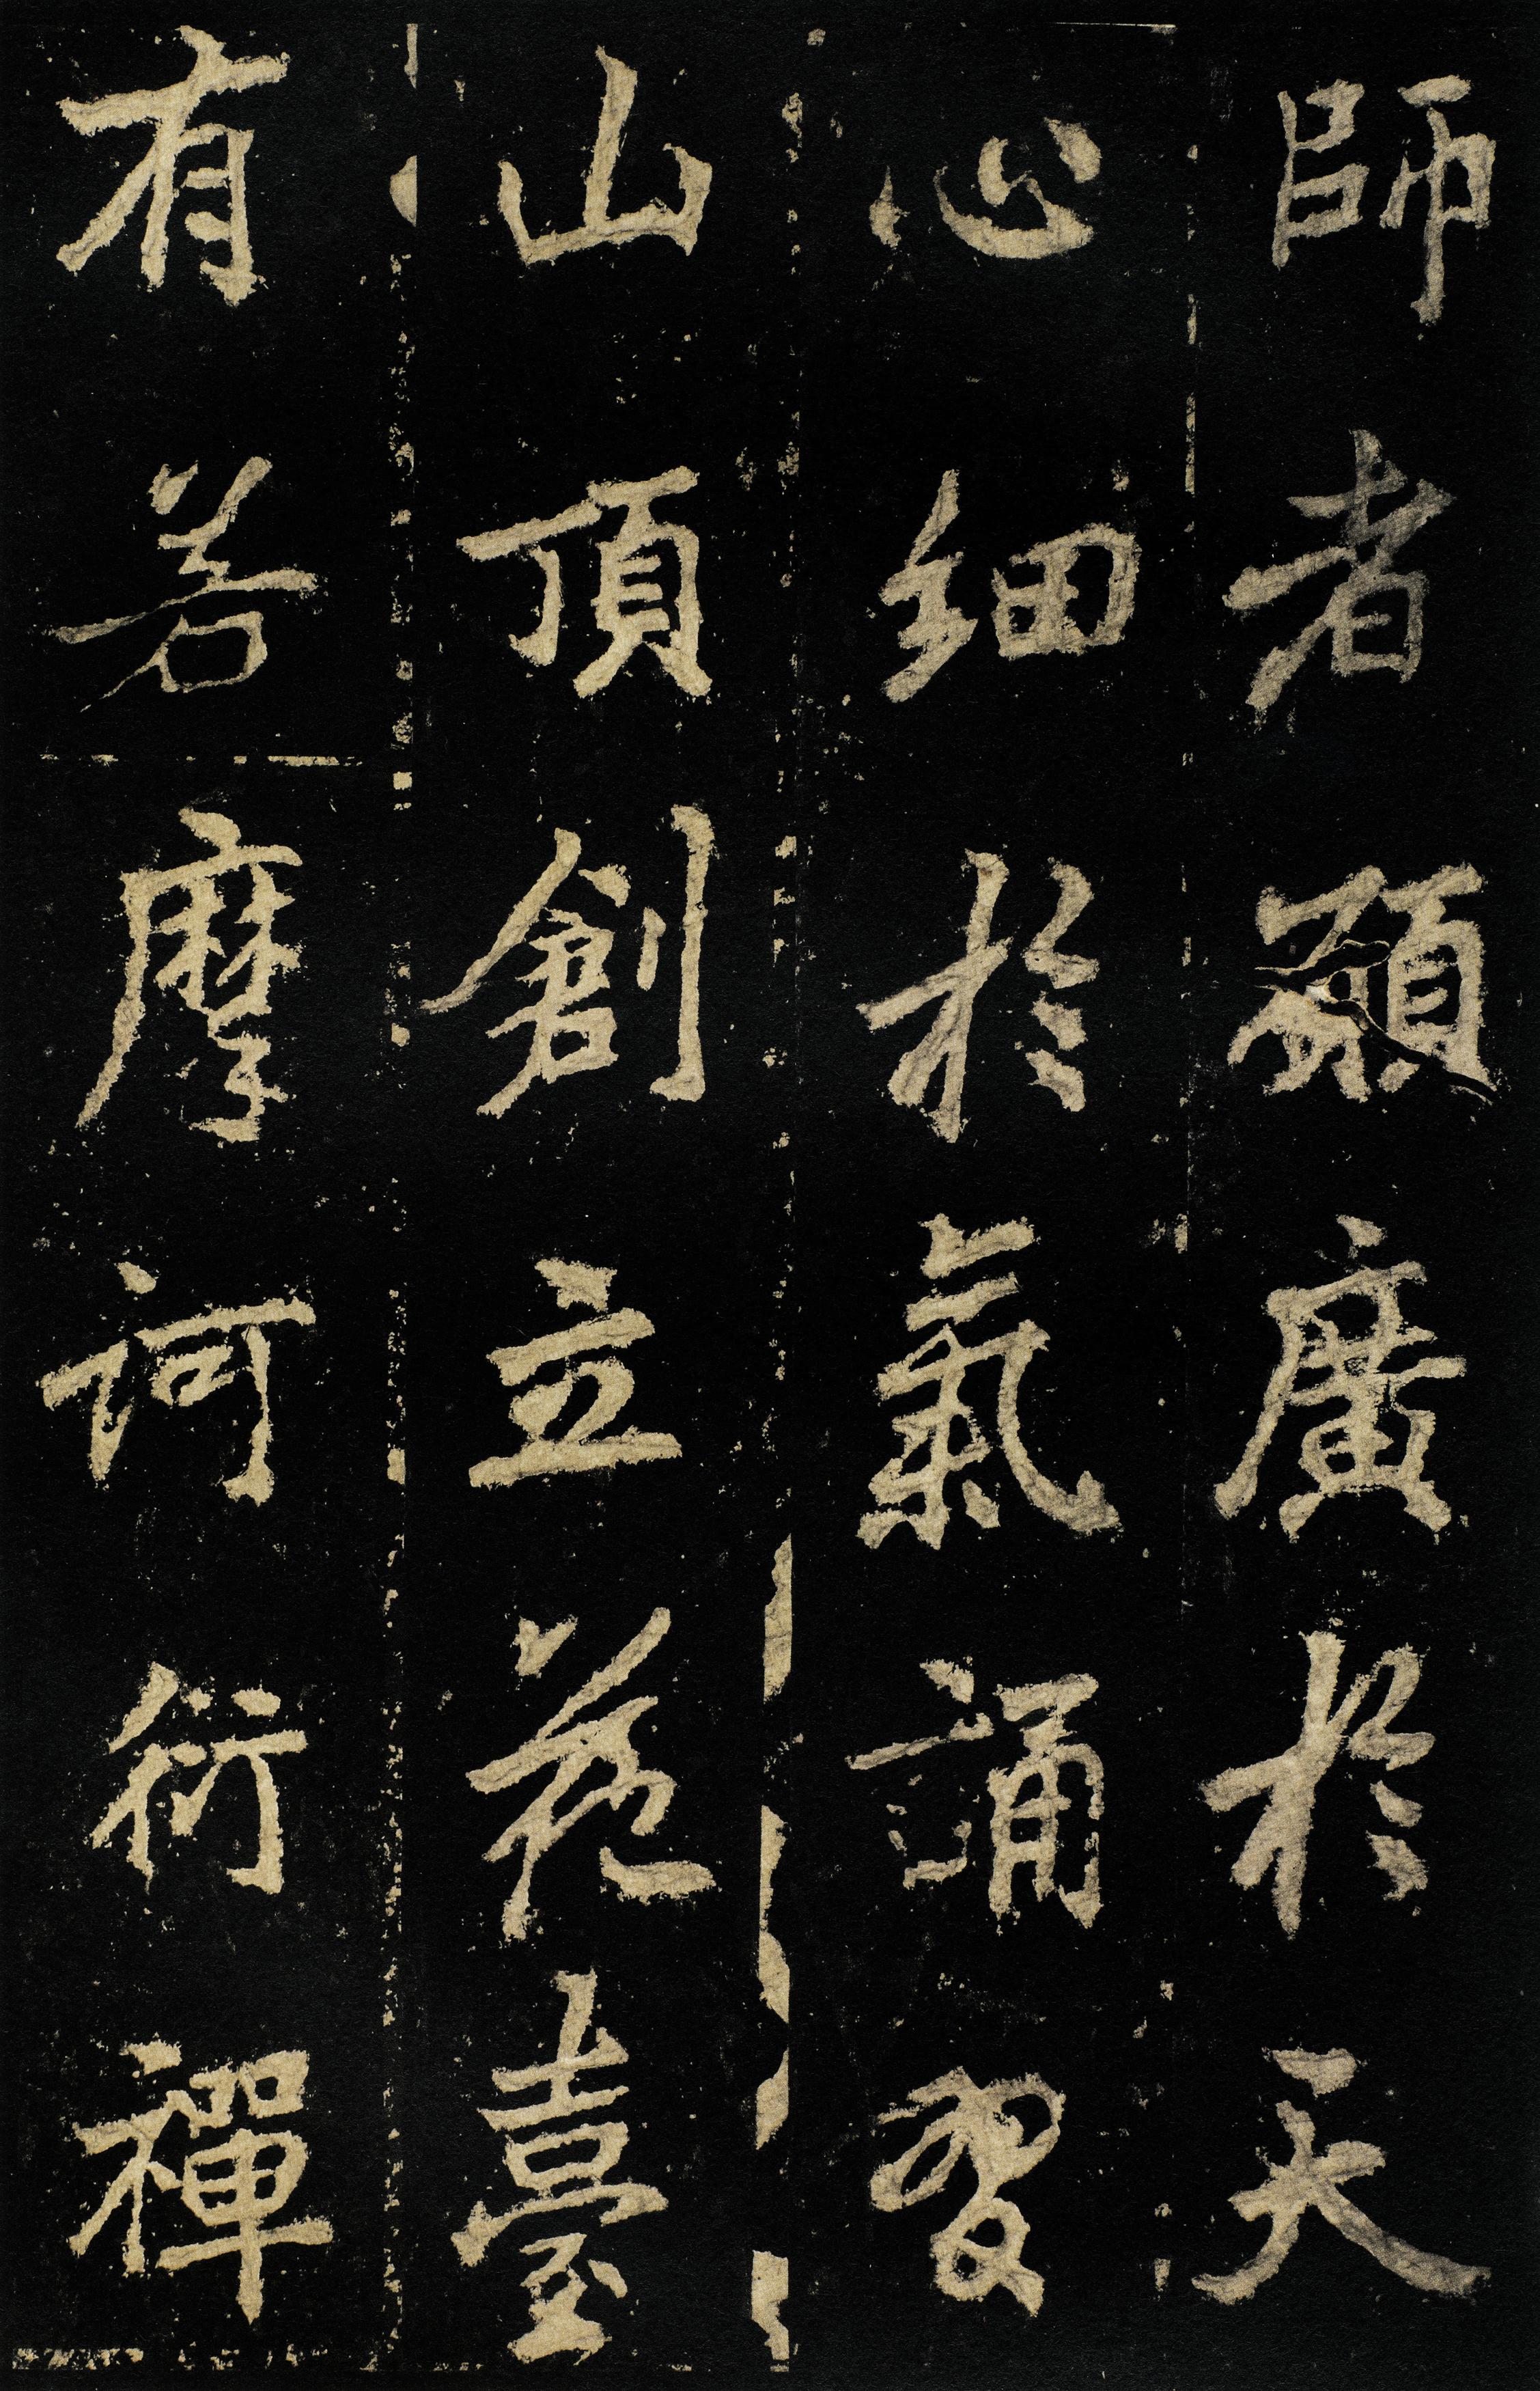 師者顗廣於天
心細於氣誦習
山頂創立花臺
有若摩訶衍禪